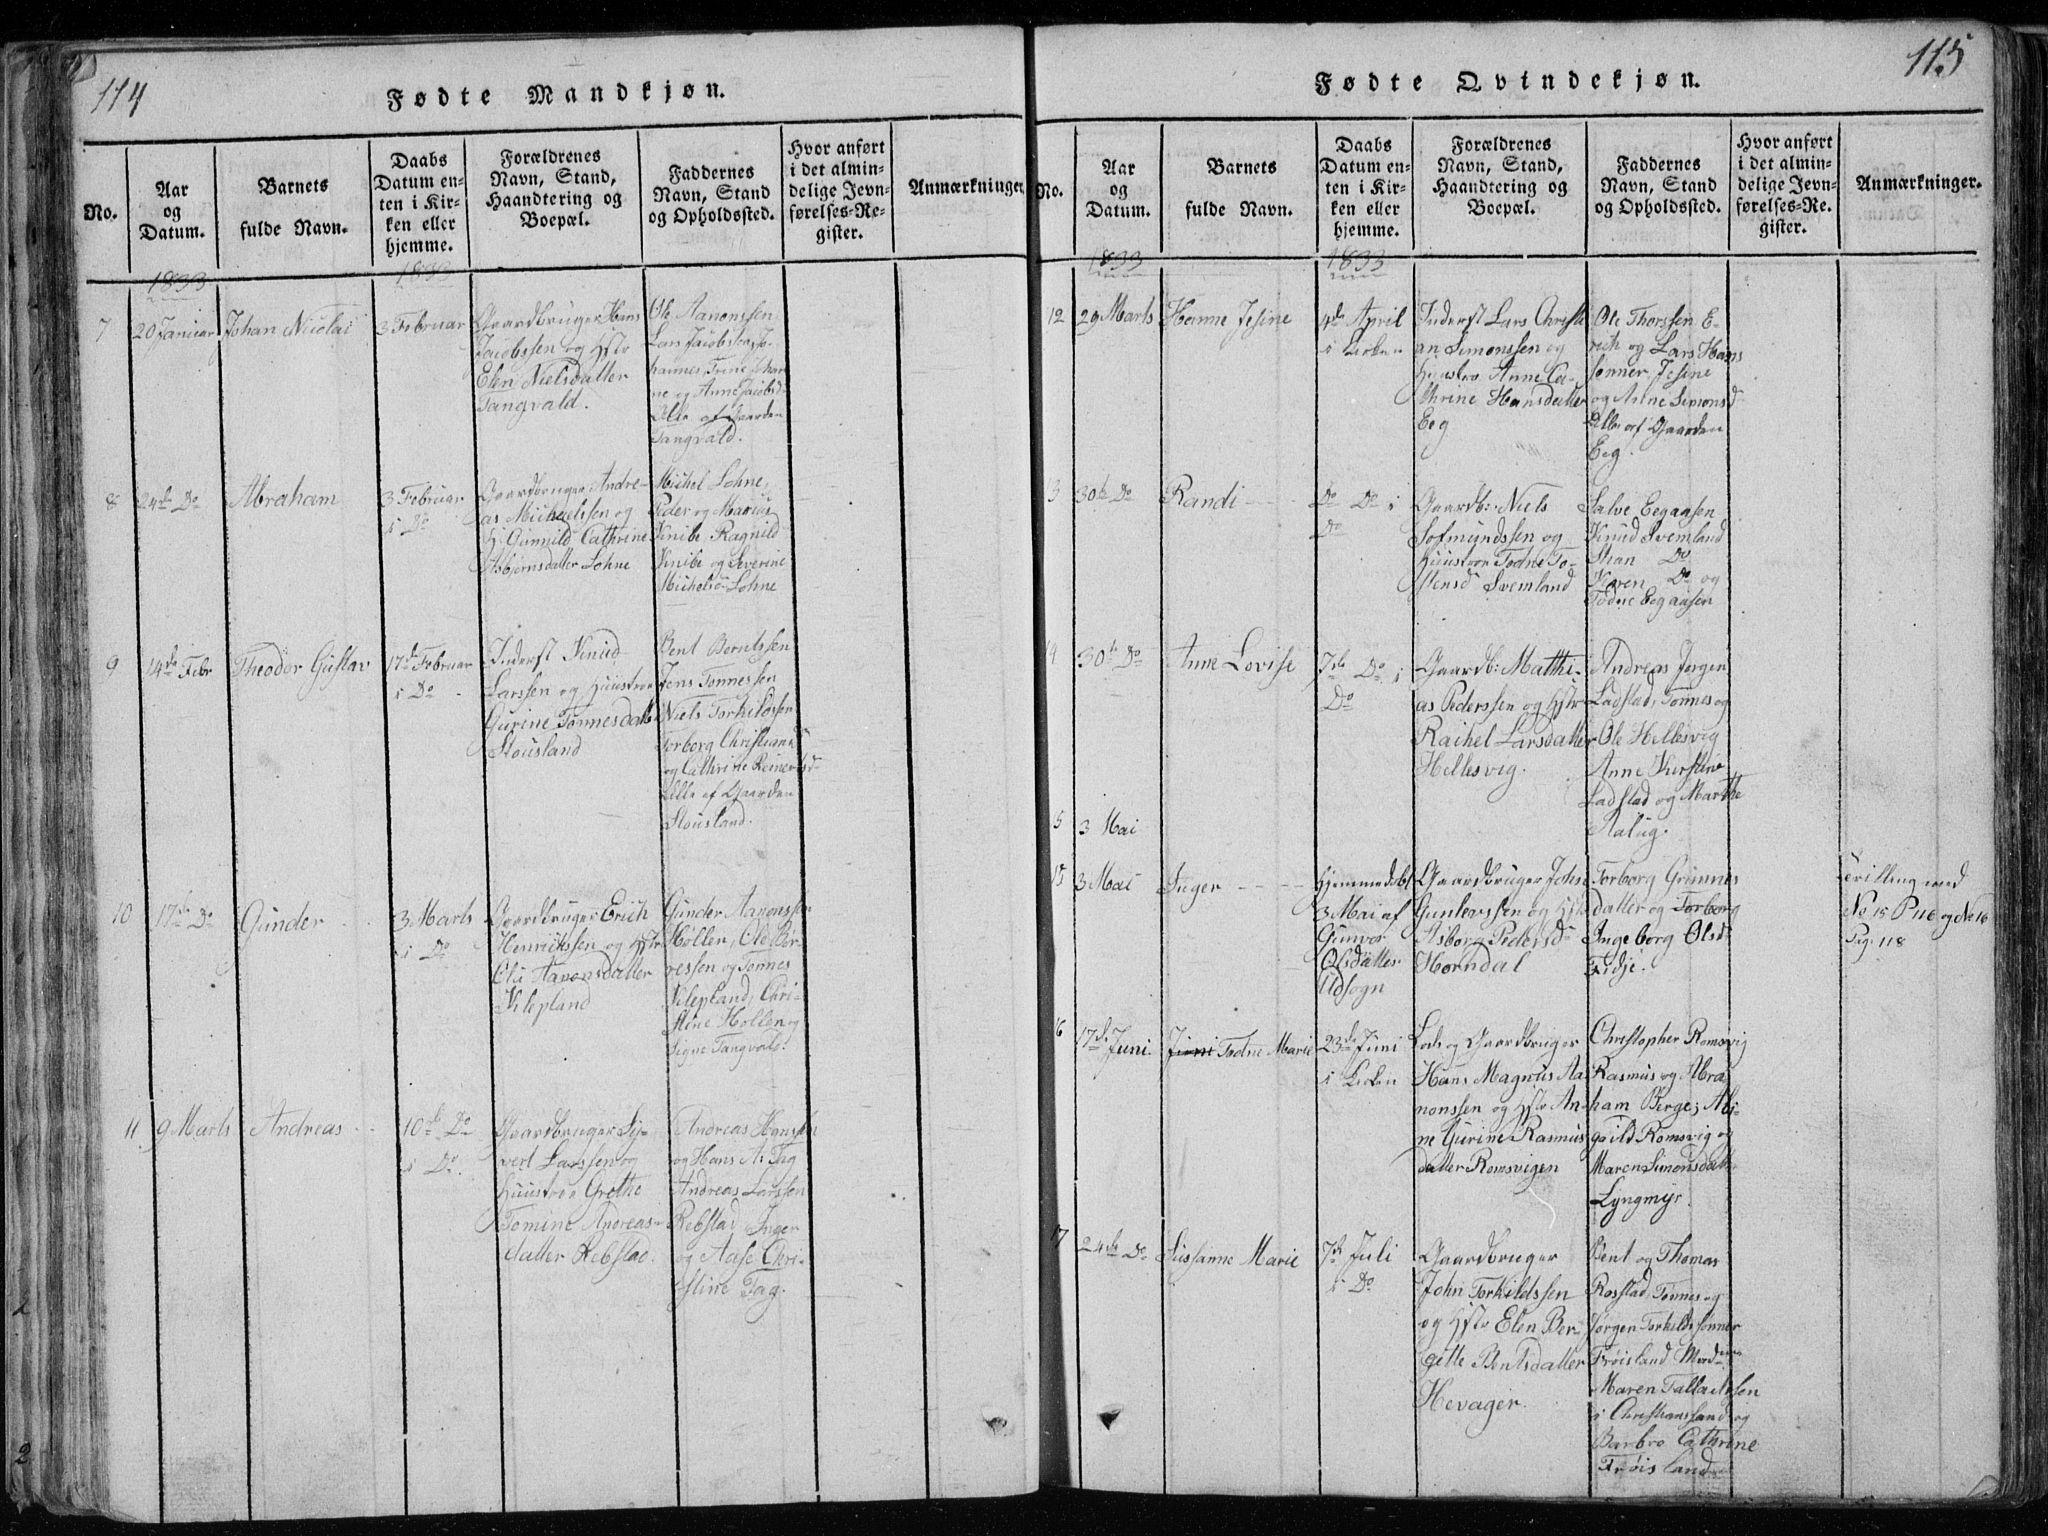 114
Fødte Mandkjøn.
No.
Aar
og
Datum.
Barnets
fulde Navn.
Daabs
Datum en-
ten i Kir-
ken eller
hjemme.
Forældrenes
Navn, Stand,
Haandtering og
Boepæl.
Faddernes
Navn, Stand
og Opholdssted.
Hvor anført
i det almin-
delige Jevn-
førelses-Re-
gister.
Anmærkninger.
1833
1833
7
20 Januar
Johan Nicolai
3 Februar
Gaardbruger Hans
Jacobssen og Hstr
Elen Nielsdatter
Tangvald.
Ole Aanonssen
Lars Jacobssen, Jo-
hannes, Trine, Mar
ne og Anne Jacobsd
Alle af Gaarden
Tangvald.
8
24de Do
Abraham
3 Februar
i Do
Gaardbruger Andre-
as Michaelssen og
H. Gunnild Cathrine
Asbjørnsdatter Lohne
Michel Lohne,
Peder og Marius
Knibe, Ragnild
Knibe og Severine
Michels- Lohne
9
14de Febr
Theodor Gustav
17de Februar
i Do
Inderst Knud
Larssen og Huustroe
Gurine Tønnesdatt
Stousland
Bent Berntssen
Jens Tønnessen
Niels Torkildssen
Torborg Christiansd
og Cathrine Reinertsd
Alle af Gaarden
Stousland.
10
17de Do
Gunder
3 Marts
i Do
Gaardbruger Erich
Henrichssen og Hstr
Ola Aanonsdatter
Kilepland
Gunder Aanonssen
Høllen, Ole Bør-
ressen og Tønnes
Kilepland, Chri-
stine Høllen og
Signe Tangvald.
11
9 Marts
Andreas
10de Do
i Do.
Gaardbruger Sy-
vert Larssen og
Huustroe Grethe
Tomine Andreas-
datter Rebstad.
Andreas Hanssen
og Hans A. Fag
Andreas Larssen
Rebstad, Inger
og Aase Chri-
stine Fag.
115
Fødte Qvindekjøn.
No.
Aar
og
Datum.
Barnets
fulde Navn.
Daabs
Datum en-
ten i Kir-
ken eller
hjemme.
Forældrenes
Navn, Stand,
Haandtering og
Boepæl.
Faddernes
Navn, Stand
og Opholdssted.
Hvor anført
i det almin-
delige Jevn-
førelses-Re-
gister.
Anmærkninger.
1833
1833
12
29 Marts
Hanne Jesine
4de April
i Kirken
Inderst Lars Christi
an Simonssen og
Huustro Anne Ca-
thrine Hansdatter
Eeg
Ole Thorssen E-
rich og Lars Hans
sønner, Jesine
og Anne Simonsd
Alle af Gaarden
Eeg.
3
30te Do
Randi
Do Do i
Do
Gaardb: Niels
Sofmundssen og
Huustroe Todne To-
stensd Svemland
Salve Eegaasen
Knud Svemland
Stian Do
Karen Do og
Todne Eegaasen
14
30te Do
Anne Lovise
7de Do i
Do
Gaardb: Matthi-
as Pederssen og Hstr
Rachel Larsdatter
Hellesvig.
Andreas Jørgen
Ladstad, Tønnes og
Ole Hellesvig
Anne Kirstine
Ladstad og Marthe
Aalug.
5
3 Mai
15
3 Mai
Inger
Hjemmedøbt
3 Mai af
Gunvor
Olsdatter
Udsogn
Gaardbruger John
Gunlevssen og Hstr
Asborg Pedersd-
Horndal
Torborg Grimnes
datter og Torborg
Ingeborg Olsd-
Fidje.
Tvilling med
No 15 P 116 og No 16
Pag. 118
16
17de Juni.
Juni Todne Marie
23de Juni
i Kirken
Lods og Gaardbruger
Hans Magnus Aa
nonssen og Hstr An-
ne Gurine Rasmus
datter Romsvigen
Christopher Romsvig
Rasmus og Abra
ham Berge, Abi-
gaild Romsvig og
Maren Simonsdatt
Lyngmyr.
17
24de Do
Sussanne Marie
7de Juli
i Do
Gaardbruger
John Torkildssen
og Hstr Elen Ber-
gitte Bentsdatter
Hevager.
Bent og Thomas
Rosstad, Tønnes og
Jørgen Torkildssønner
Frøisland Mad
Maren Fallachssen
i Christianssand og
Barbro Cathrine
Frøisland